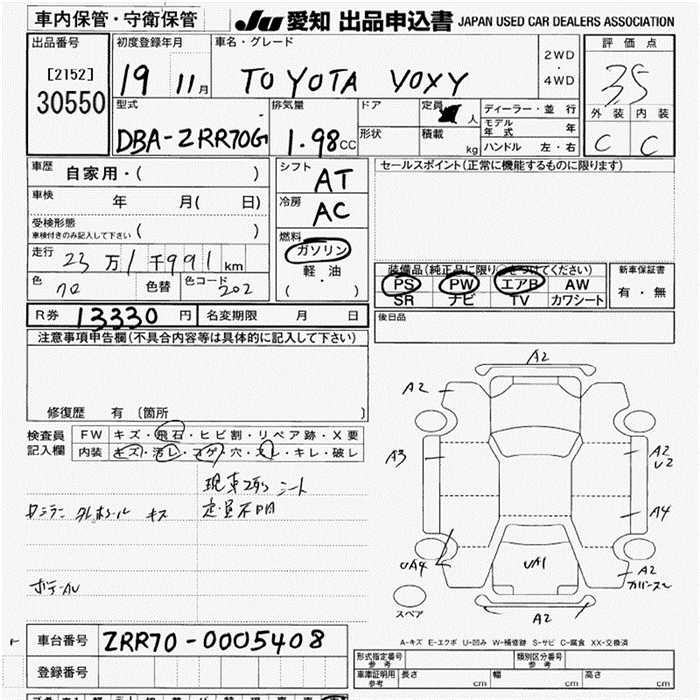 車内保管・守衛保管 JU 愛知 出品申込書 JAPAN USED CAR DEALERS ASSOCIATION
出品番号 初度登録年月 車名・グレード 2WD・4WD 評価点
[2152] 30550 19 11月 TOYOTA VOXY 3.5
外装 内装
C C
型式 排気量 ドア 定員 人 ディーラー・並行
DBA-ZRR70G 1.98CC 形状 積載 kg モデル年式 年
ハンドル 左・右
車歴 自家用・( )
シフト AT
セールスポイント(正常に機能するものに限ります)
車検 年 月( 日)
冷房 AC
受検形態
車検付きのみ記入して下さい ( )
燃料 ガソリン
軽・油
( ・ )
走行 23万1千991km
色 70 色替 色コード 202
装備品(純正品に限り をつけてください) 新車保証書
PS PW エアB AW 有・無
SR ナビ TV カワシート
R券 13330円 名変期限 月 日
後日品
注意事項申告欄(不具合内容等は具体的に記入して下さい)
修復歴 有 〔箇所 〕
検査員記入欄 FW キズ・飛石・ヒビ割・リペア跡・X要
内装 キズ・汚レ・コゲ・穴・スレ・キレ・破レ
シート
定員不明
キズ
A2
A2
A3
A2
U2
A4
UA4
UA1
A2
A2
スペア
A-キズ E-エクボ U-凹み W-補修跡 S-サビ C-腐食 XX-交換済
車台番号 ZRR70-0005408
登録番号
形式指定番号 参考 類別区分番号 参考
車庫証明用 参考 長さ cm 幅 cm 高さ cm